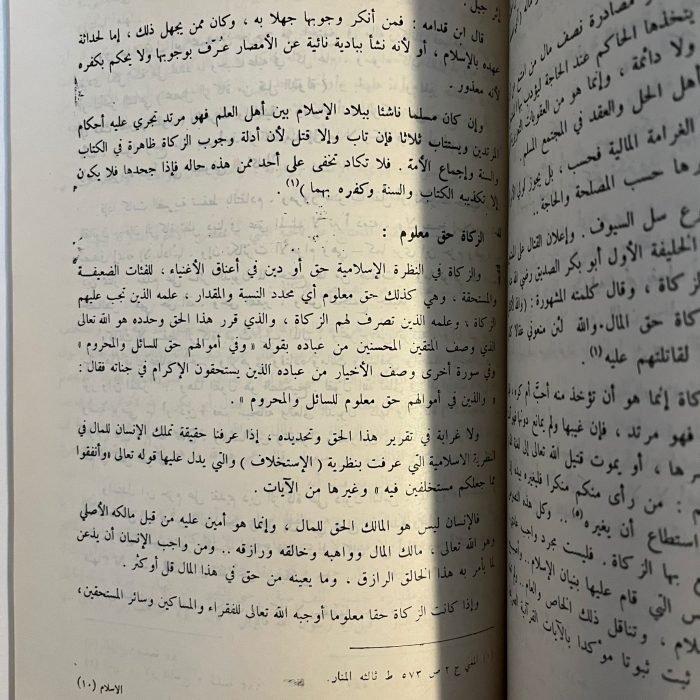 إثر جيل .
قال ابن قدامه : فمن أنكر وجوبها جهلا به ، وكان ممن يجهل ذلك ، إما لحداثة
عهده بالإسلام ، أو لأنه نشأ ببادية نائية عن الأمصار عُرّف بوجوبها ولا يحكم بكفره
لأنه معذور .
وإن كان مسلما ناشئا ببلاد الإسلام بين أهل العلم فهو مرتد تجري عليه أحكام
المرتدين ويستتاب ثلاثا فإن تاب وإلا قتل لأن أدلة وجوب الزكاة ظاهرة في الكتاب
والسنة وإجماع الأمة . فلا تكاد تخفى على أحد ممن هذه حاله فإذا جحدها فلا يكون
إلا لتكذيبه الكتاب والسنة وكفره بهما )(١) .
الزكاة حق معلوم :
والزكاة في النظرة الإسلامية حق أو دين في أعناق الأغنياء ، للفئات الضعيفة
والمستحقة ، وهي كذلك حق معلوم أي محدد النسبة والمقدار ، علمه الذين تجب عليهم
الزكاة ، وعلمه الذين تصرف لهم الزكاة ، والذي قرر هذا الحق وحدده هو الله تعالى
الذي وصف المتقين المحسنين من عباده بقوله « وفي أموالهم حق للسائل والمحروم »
وفي سورة أخرى وصف الأخيار من عباده الذين يستحقون الإكرام في جناته فقال :
« والذين في أموالهم حق معلوم للسائل والمحروم » .
ولا غرابة في تقرير هذا الحق وتحديده ، إذا عرفنا حقيقة تملك الإنسان للمال في
النظرية الاسلامية التي عرفت بنظرية ( الإستخلاف ) والتي يدل عليها قوله تعالى «وأنفقوا
مما جعلكم مستخلفين فيه » وغيرها من الآيات .
فالإنسان ليس هو المالك الحق للمال ، وإنما هو أمين عليه من قبل مالكه الأصلي
وهو الله تعالى ، مالك المال وواهبه وخالقه ورازقه .. ومن واجب الإنسان أن يذعن
لما يأمر به هذا الخالق الرازق . وما يعينه من حق في هذا المال قل أو كثر .
وإذا كانت الزكاة حقا معلوما أوجبه الله تعالى للفقراء والمساكين وسائر المستحقين،
ج ٢ ص ٥٧٣ ط ثالثه المنار.
الاسلام (١٠)
مصادرة نصف مال من
يتخذها الحاكم عند الحاجة
ولا دائمة ، وإنما هو من العقوبات
أهل الحل والعقد في المجتمع المسلم
الغرامة المالية فحسب ، بل يجوز
حسب المصلحة والحاجة ..
سل السيوف . وإعلان القتال على
الخليفة الأول أبو بكر الصديق رضي الله
الزكاة ، وقال كلمته المشهورة :
الزكاة حق المال . والله لئن منعوني
لقاتلتهم عليه (١) .
إنما هو أن تؤخذ منه أحبّ أم كره
فهو مرتد ، فإن غيبها ولم يمانع دونها
أو يموت قتيل الله تعالى إلى
: من رأى منكم منكرا فليغيره بيده
استطاع أن يغيره(٥) .. وكل هذه
بها الزكاة . فليست مجرد واجب
التي قام عليها بنيان الإسلام ..
، وتناقل ذلك الخاص والعام ..
ثبوتا مؤكدا بالآيات القرآنية